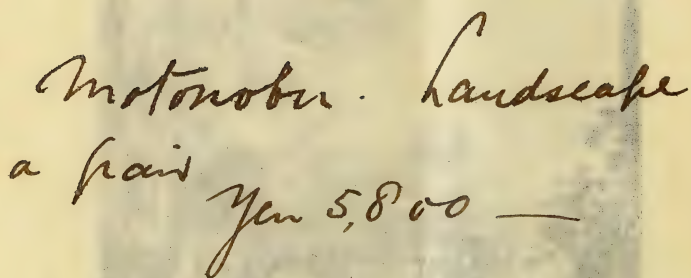 Motonobu. Landscape
a pair
Yen 5,800 —